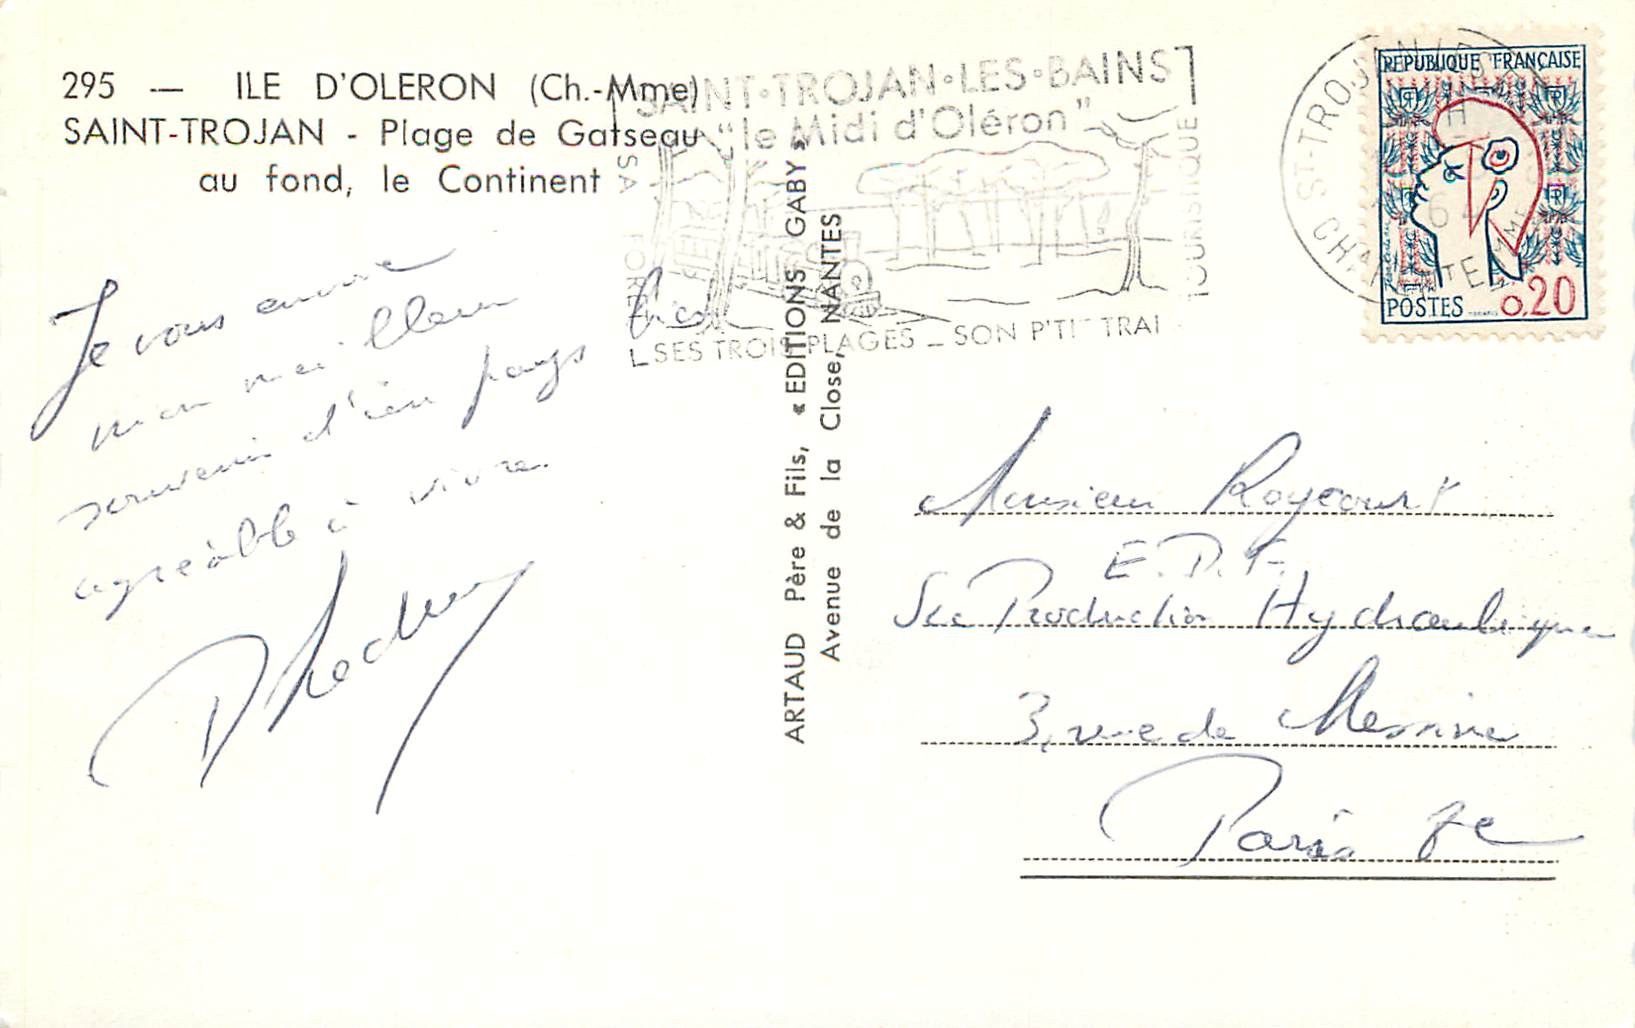 295 — ILE D'OLERON (Ch.-Mme)
SAINT-TROJAN - Plage de Gatseau
au fond, le Continent
SAINT·TROJAN·LES·BAINS
"le Midi d'Oléron"
SA
TOURISTIQUE
SES TROIS PLAGES _ SON P'TI TRAI
ST-TROJAN
CH
64
RÉPUBLIQUE FRANÇAISE
POSTES 0,20
Je vous envoie
mon meilleur
souvenir d'un pays
agréable à vivre.
ARTAUD Père & Fils, « EDITIONS GABY »
Avenue de la Close, NANTES
Monsieur Roycourt
E.D.F.
Sce Production Hydraulique
3, rue de Messine
Paris 8e